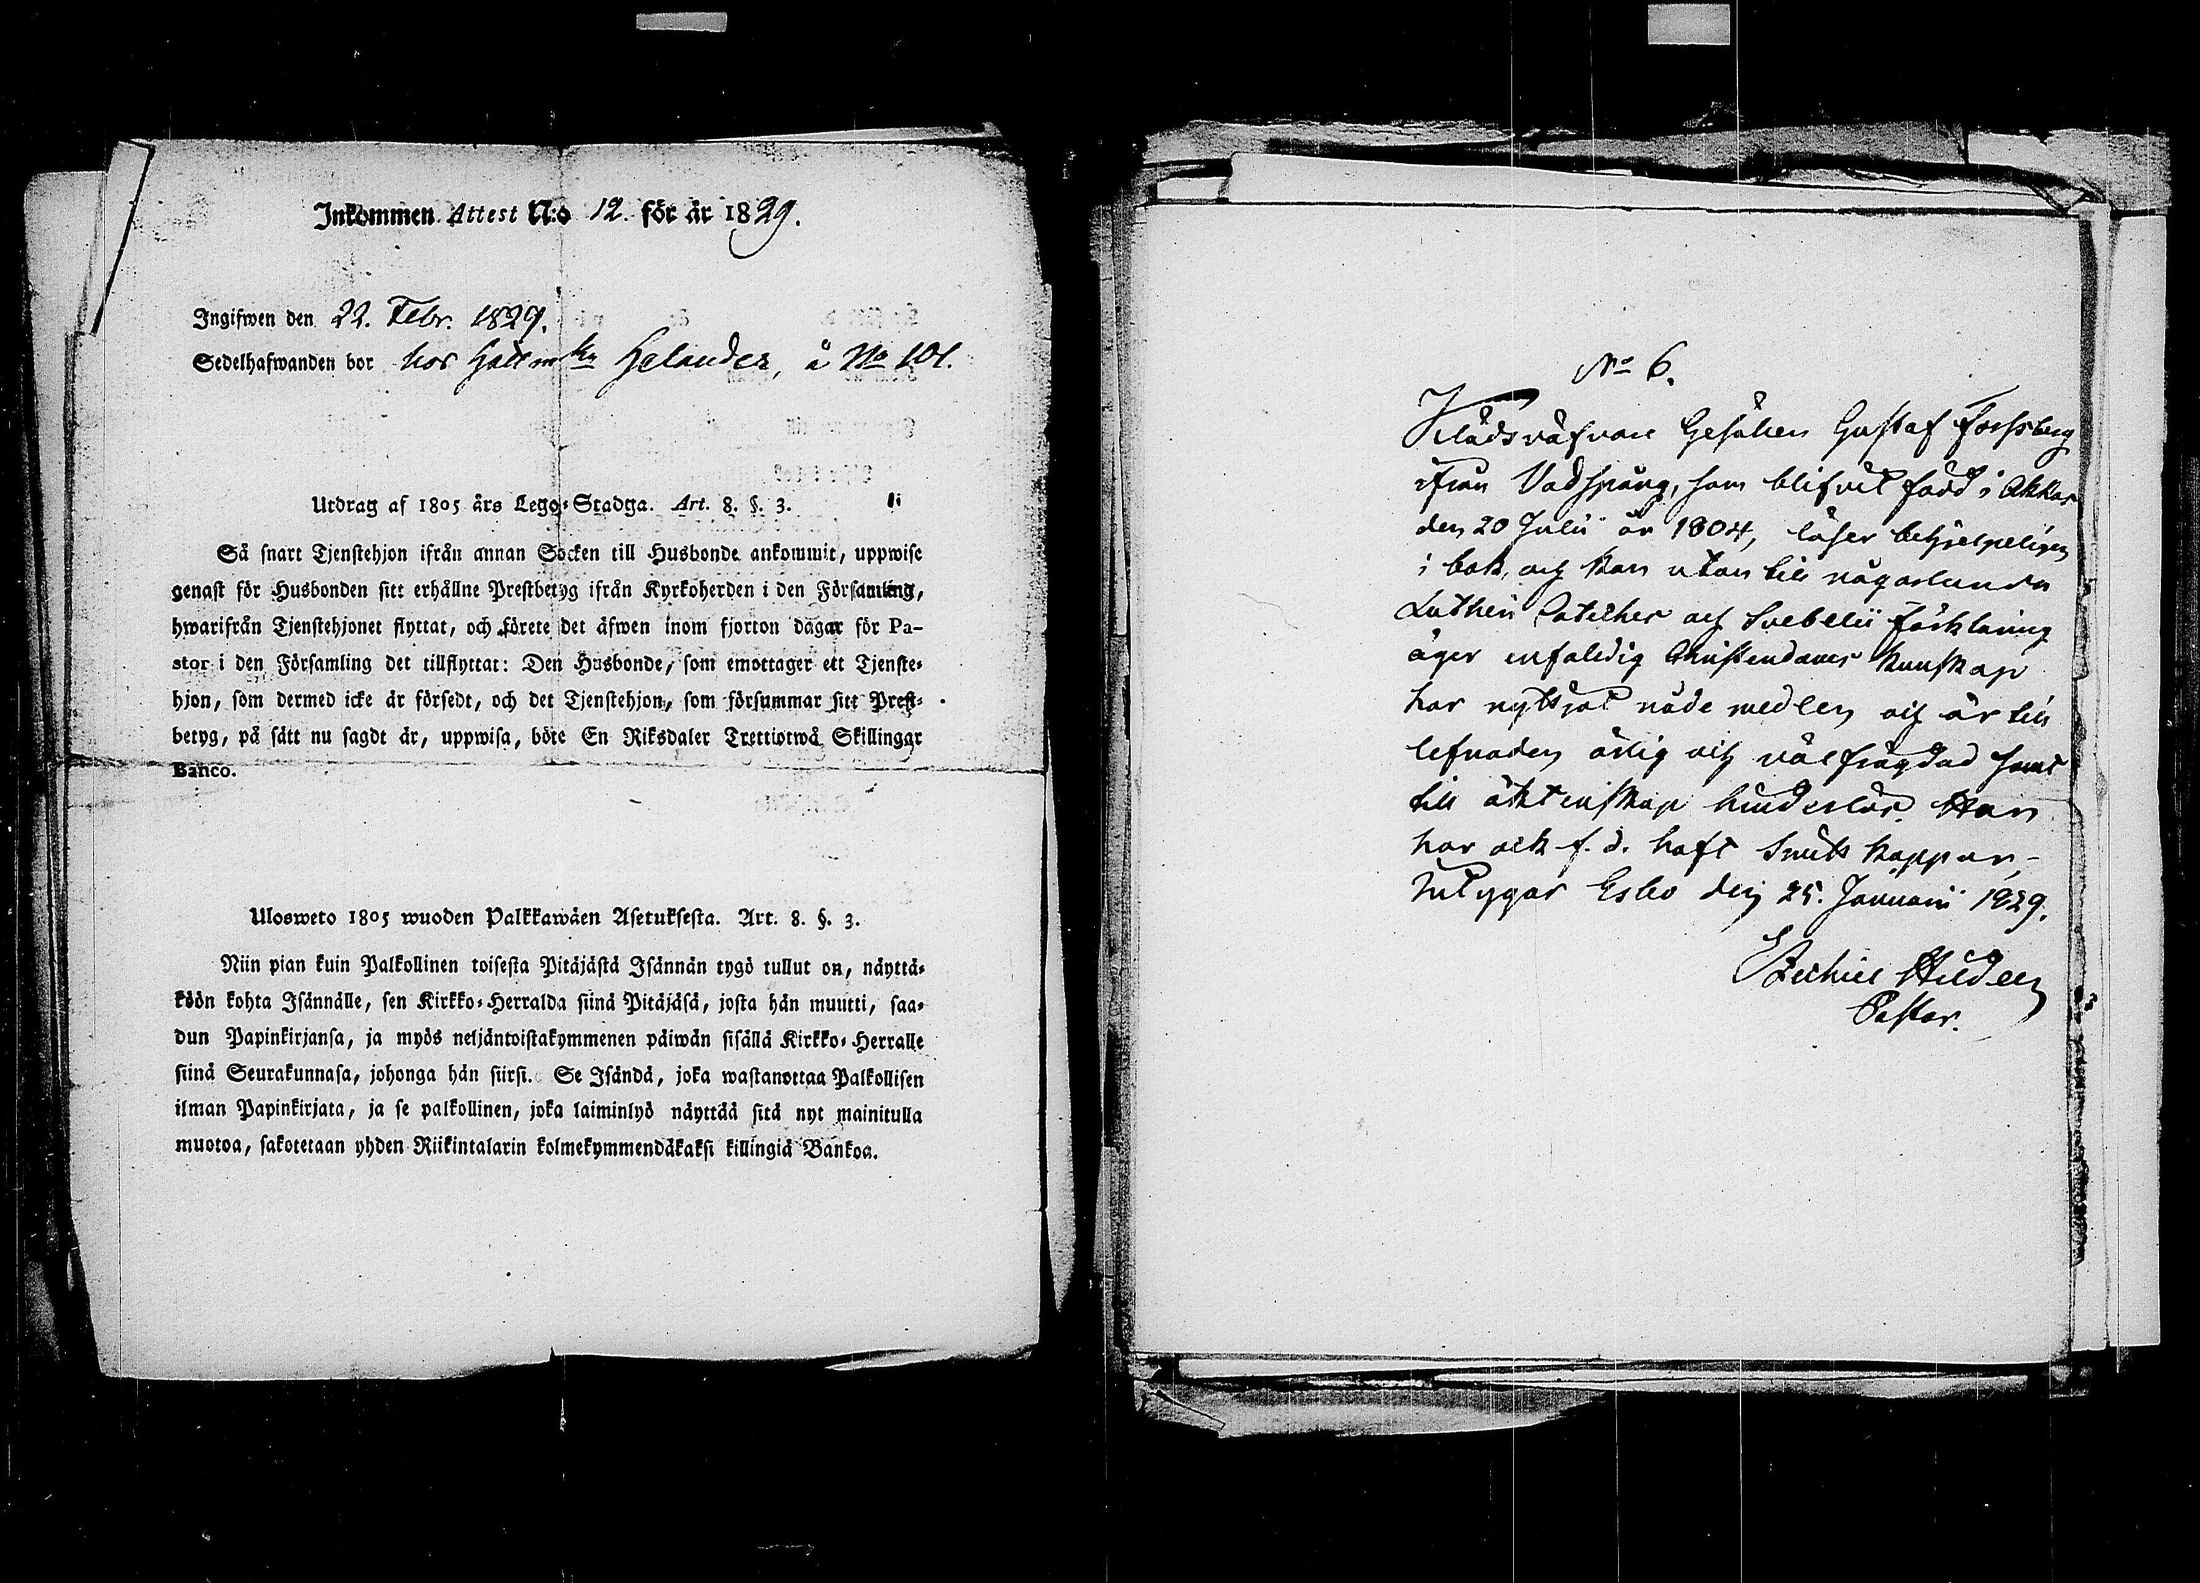 Inkommen Attest N:o 12. för år 1829.
Ingifwen den 22. Febr. 1829.
Sedelhafwanden bor hos Hattmkn Helander, å No 101.
Utdrag af 1805 års Lego-Stadga. Art. 8. §. 3.
Så snart Tjenstehjon ifrån annan Socken till Husbonde ankommit, uppwise
genast för Husbonden sitt erhållne Prestbetyg ifrån Kyrkoherden i den Församling,
hwarifrån Tjenstehjonet flyttat, och förete det äfwen inom fjorton dagar för Pa-
stor i den Församling det tillflyttat: Den Husbonde, som emottager ett Tjenste-
hjon, som dermed icke är försedt, och det Tjenstehjon, som försummar sitt Prest-
betyg, på sätt nu sagdt är, uppwisa, böte En Riksdaler Trettiotwå Skillingar
Banco.
Ulosweto 1805 wuoden Palkkawäen Asetuksesta. Art. 8. §. 3.
Niin pian kuin Palkollinen toisesta Pitäjästä Isännän tygö tullut on, näyttä-
köön kohta Isännälle, sen Kirkko-Herralda siinä Pitäjäsä, josta hän muutti, saa-
dun Papinkirjansa, ja myös neljäntoistakymmenen päiwän sisällä Kirkko-Herralle
siinä Seurakunnasa, johonga hän siirsi. Se Isändä, joka wastanottaa Palkollisen
ilman Papinkirjata, ja se palkollinen, joka laiminlyö näyttää sitä nyt mainitulla
muotoa, sakotetaan yhden Riikintalarin kolmekymmendäkaksi killingiä Bankoa.
No 6.
Klädsväfvare Gesällen Gustaf Forssberg
ifrån Vadspång, som blifvit född i Akkas
den 20 Julii år 1804, läser behjelpeligen
i bok, och kan utan till någorlunda
Lutheri Cateches och Svebelii förklaring
äger enfaldig Christendoms kunskap
har nyttjat nådemedlen och är till
lefnaden ärlig och välfrägdad samt
till äktenskap hinderlös. Han
har ock f. d. haft Smitt koppor,-
Intygar Esbo den 25. Januarii 1829.
Ezechiel Hildeen
Pastor.